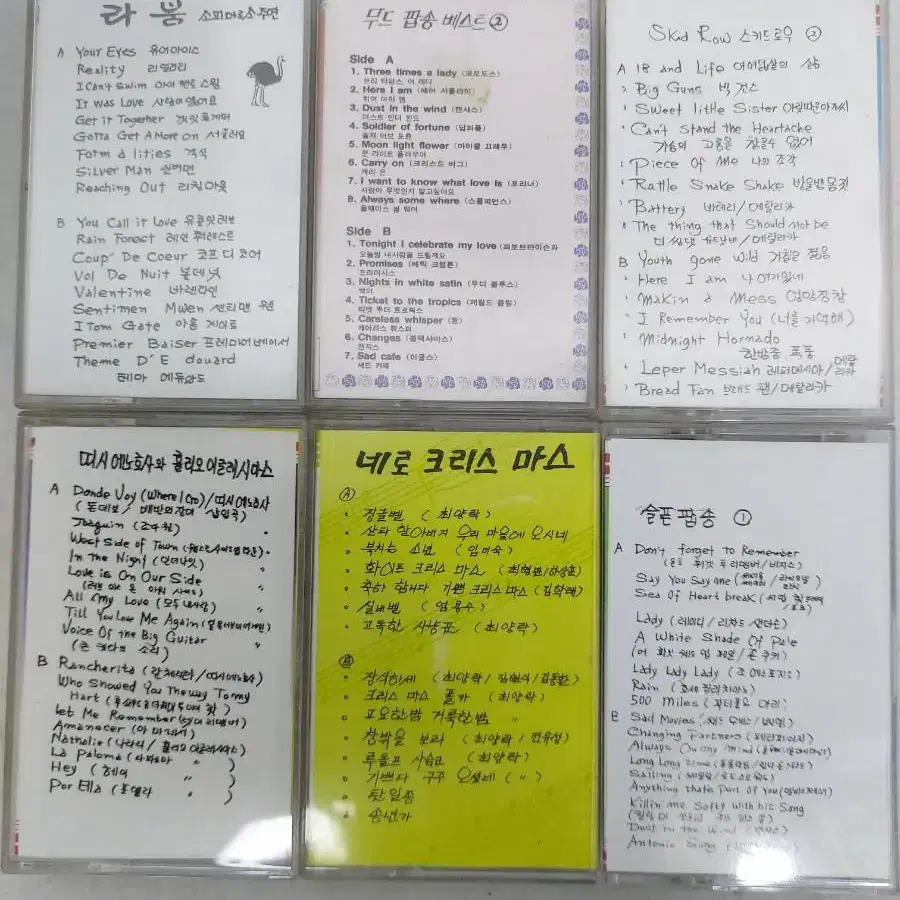 라 붐 소피마르소주연
A Your Eyes 유어아이스
Reality 리얼리티
I Can't Swim 아이 켄트 스윔
It was Love 사랑이였어요
Get it Together 겟잇투게더
Gotta Get A Move on 서둘러요
Form a lities 격식
Silver Man 실버맨
Reaching Out 리치아웃
B You Call it Love 유콜잇러브
Rain Forest 레인 훠레스트
Coup' De Coeur 코프 디 코어
Vol De Nuit 볼데닛
Valentine 바렌타인
Sentimen Mwen 센티맨 웬
I Tom Gate 아톰 게이트
Premier Baiser 프레미어 베이서
Theme D'E douard
테마 에듀와드
무드 팝송 베스트 ②
Side A
1. Three times a lady (코모도스)
쓰리 타임스 어 레디
2. Here I am (에어 서플라이)
히어 아이 엠
3. Dust in the wind (캔사스)
더스트 인더 윈드
4. Soldier of fortune (딥퍼플)
솔져 어브 포츈
5. Moon light flower (마이클 크레투)
문 라이트 플라우어
6. Carry on (크리스드 버그)
캐리 온
7. I want to know what love is (포리너)
사랑이 무엇인지 알고싶어요
8. Always some where (스콜피언스)
올웨이스 썸 웨어
Side B
1. Tonight I celebrate my love (피보브라이슨과
오늘밤 내사랑을 드릴게요
2. Promises (에릭 크랩튼)
프라미시스
3. Nights in white satin (무디 블루스)
4. Ticket to the tropics (제랄드 졸링)
티켓 투더 트로픽스
5. Careless whisper (왬)
케어리스 휘스퍼
6. Changes (블랙사바스)
천지스
7. Sad cafe (이글스)
세드 카페
Skid Row 스키드로우 ②
A 18 and Life 여여덟살의 삶
Big Guns 빅 건스
Sweet little Sister 아릿따운아가씨
Can't Stand the Heartache
가슴의 고통을 참을수 없어
Piece Of Me 나의 조각
Rattle Snake Shake 방울뱀몸짓
Battery 바테리/메탈리카
The thing that Should not be
더 씽댓 슈드낫비/메탈리카
B Youth gone wild 거칠은 젊음
Here I am 나 여기있네
Makin a Mess 엉망징창
I Remember You (너를 기억해)
Midnight Hornado
한밤중 폭풍
Leper Messiah 레퍼메시아/메탈리카
Bread Fan 브래드 팬/메탈리카
띠시 에노호사와 훌리오 이글레시아스
A Donde Voy (Where I Go)/띠시에노호사
(돈데보/배반의장미 삽입곡)
Joaquin (조아퀸) "
West side of Town
In the Night (인더나잇) "
Love is On Our Side
(러브 이즈 온 아워 사이드) "
All My Love (모두 내사랑) "
Till You Love Me Again
Voice Of the Big Guitar
(큰 기타의 소리)
B Rancherita (란체리타/띠시에노호사)
Who Showed You The way To my
Hart
Let Me Remember (렛미리멤버)
Amanecer (아마네세)
Nathalie (나타리/훌리오 이글레시아스)
La Paloma (라파로마 " )
Hey (헤이 " )
Por Ella (포엘라 " )
네로 크리스 마스
Ⓐ
징글벨 (최양락)
산타 할아버지 우리 마을에 오시네
북치는 소년 (임미숙)
화이트 크리스 마스 (최형만/하상훈)
축하 합니다 기쁜 크리스 마스 (김학래)
실버벨 (엄용수)
고독한 사냥꾼 (최양락)
Ⓑ
장식하세
크리스 마스 폴카 (최양락)
고요한밤 거룩한밤 "
창밖을 보라 (최양락/전유성)
루돌프 사슴코 (최양락)
기쁘다 구주 오셨네 ( " )
탄일종
송년가
슬픈 팝송 ①
A Don't forget to Remember
(돈트 훠겟 투 리멤버/비지스)
Say You Say Me
Sea Of Heart break
Lady (레이디/리차드 샌더슨)
A White Shade Of Pale
Lady Lady Lady (조 에스포지토)
Rain (호세 펠리치아노)
500 Miles
B Sad Movies
Changing Partners (페티페이지)
Always On my Mind
Long Long time
Sailing
Anything thats Part Of You
Killin me Softly With his Song
Dust in the Wind (캔사스)
Antonio Song